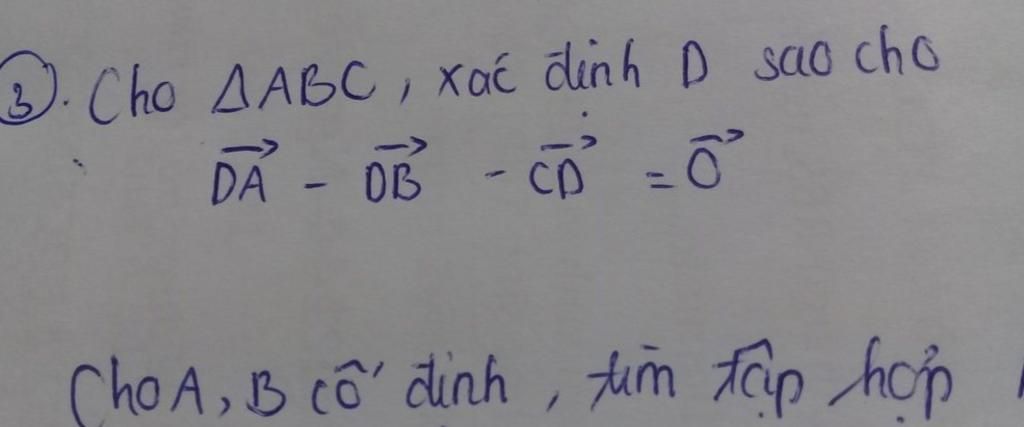 3. Cho ΔABC, xác định D sao cho
→DA - →DB - →CD = →O
Cho A, B cố định, tìm tập hợp